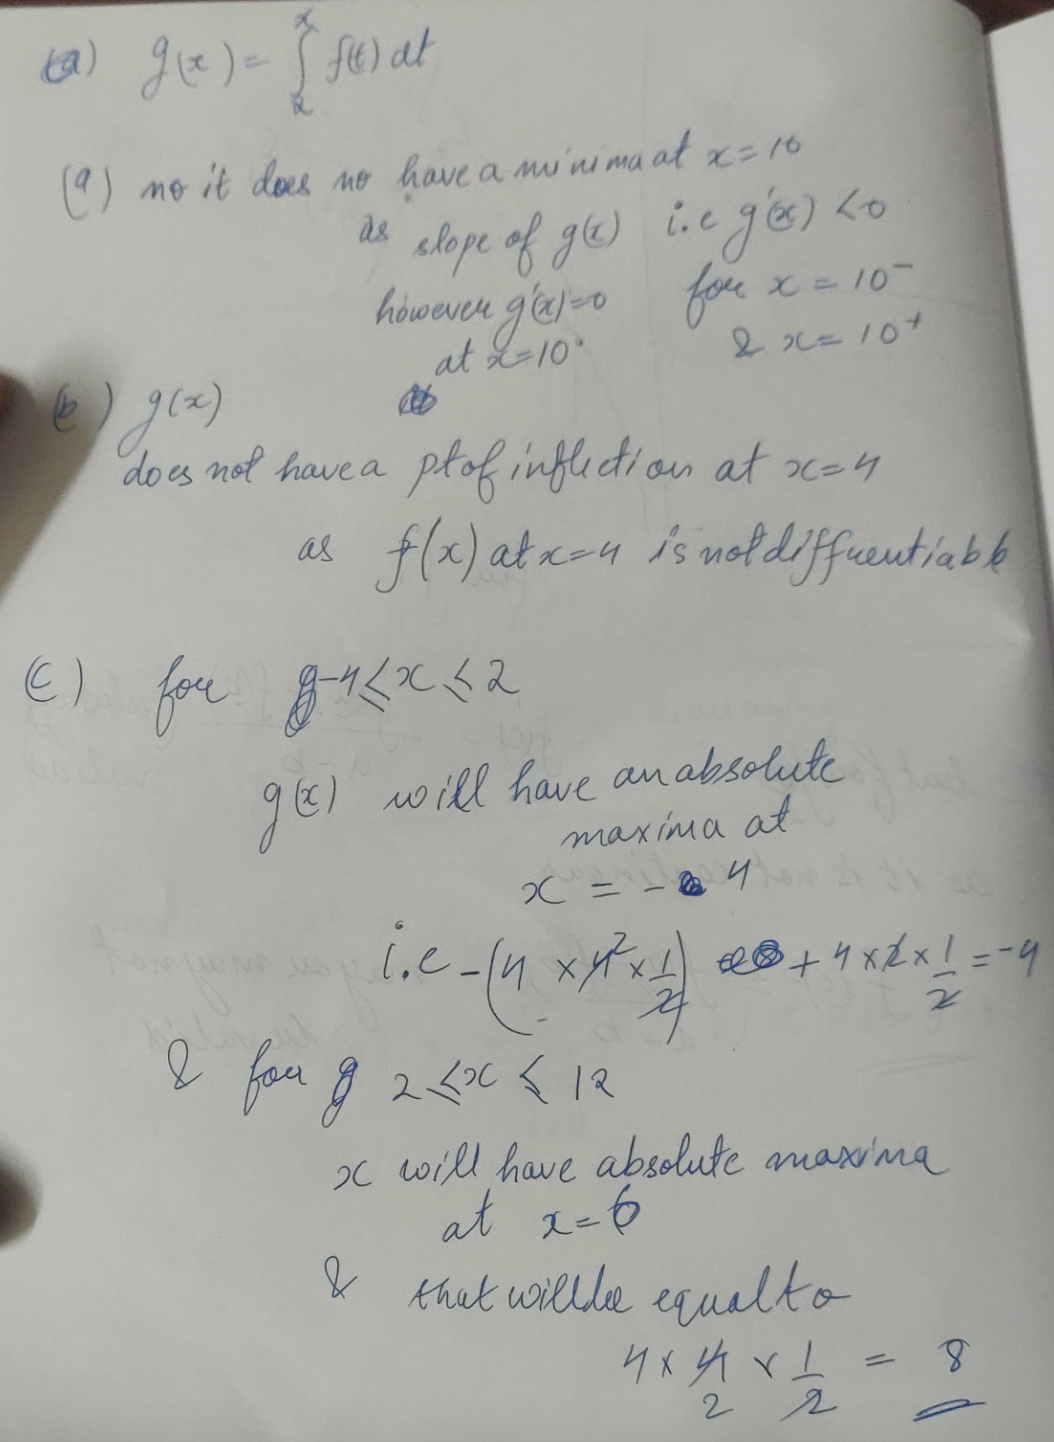 (a) g(x) = ∫₂ˣ f(t) dt
(a) no it does no have a minima at x = 10
as slope of g(x) i.e g'(x) < 0
however g'(x) = 0 for x = 10⁻
at x = 10. & x = 10⁺
(b) g(x)
does not have a pt of inflection at x = 4
as f(x) at x = 4 is not diffrentiable
(c) for -4 ≤ x ≤ 2
g(x) will have an absolute
maxima at
x = - 4
i.e -(4 × 4² × 1/2) + 4 × 2 × 1/2 = -4
& for 2 ≤ x ≤ 12
x will have absolute maxima
at x = 6
& that will be equal to
4 × 4/2 × 1/2 = 8